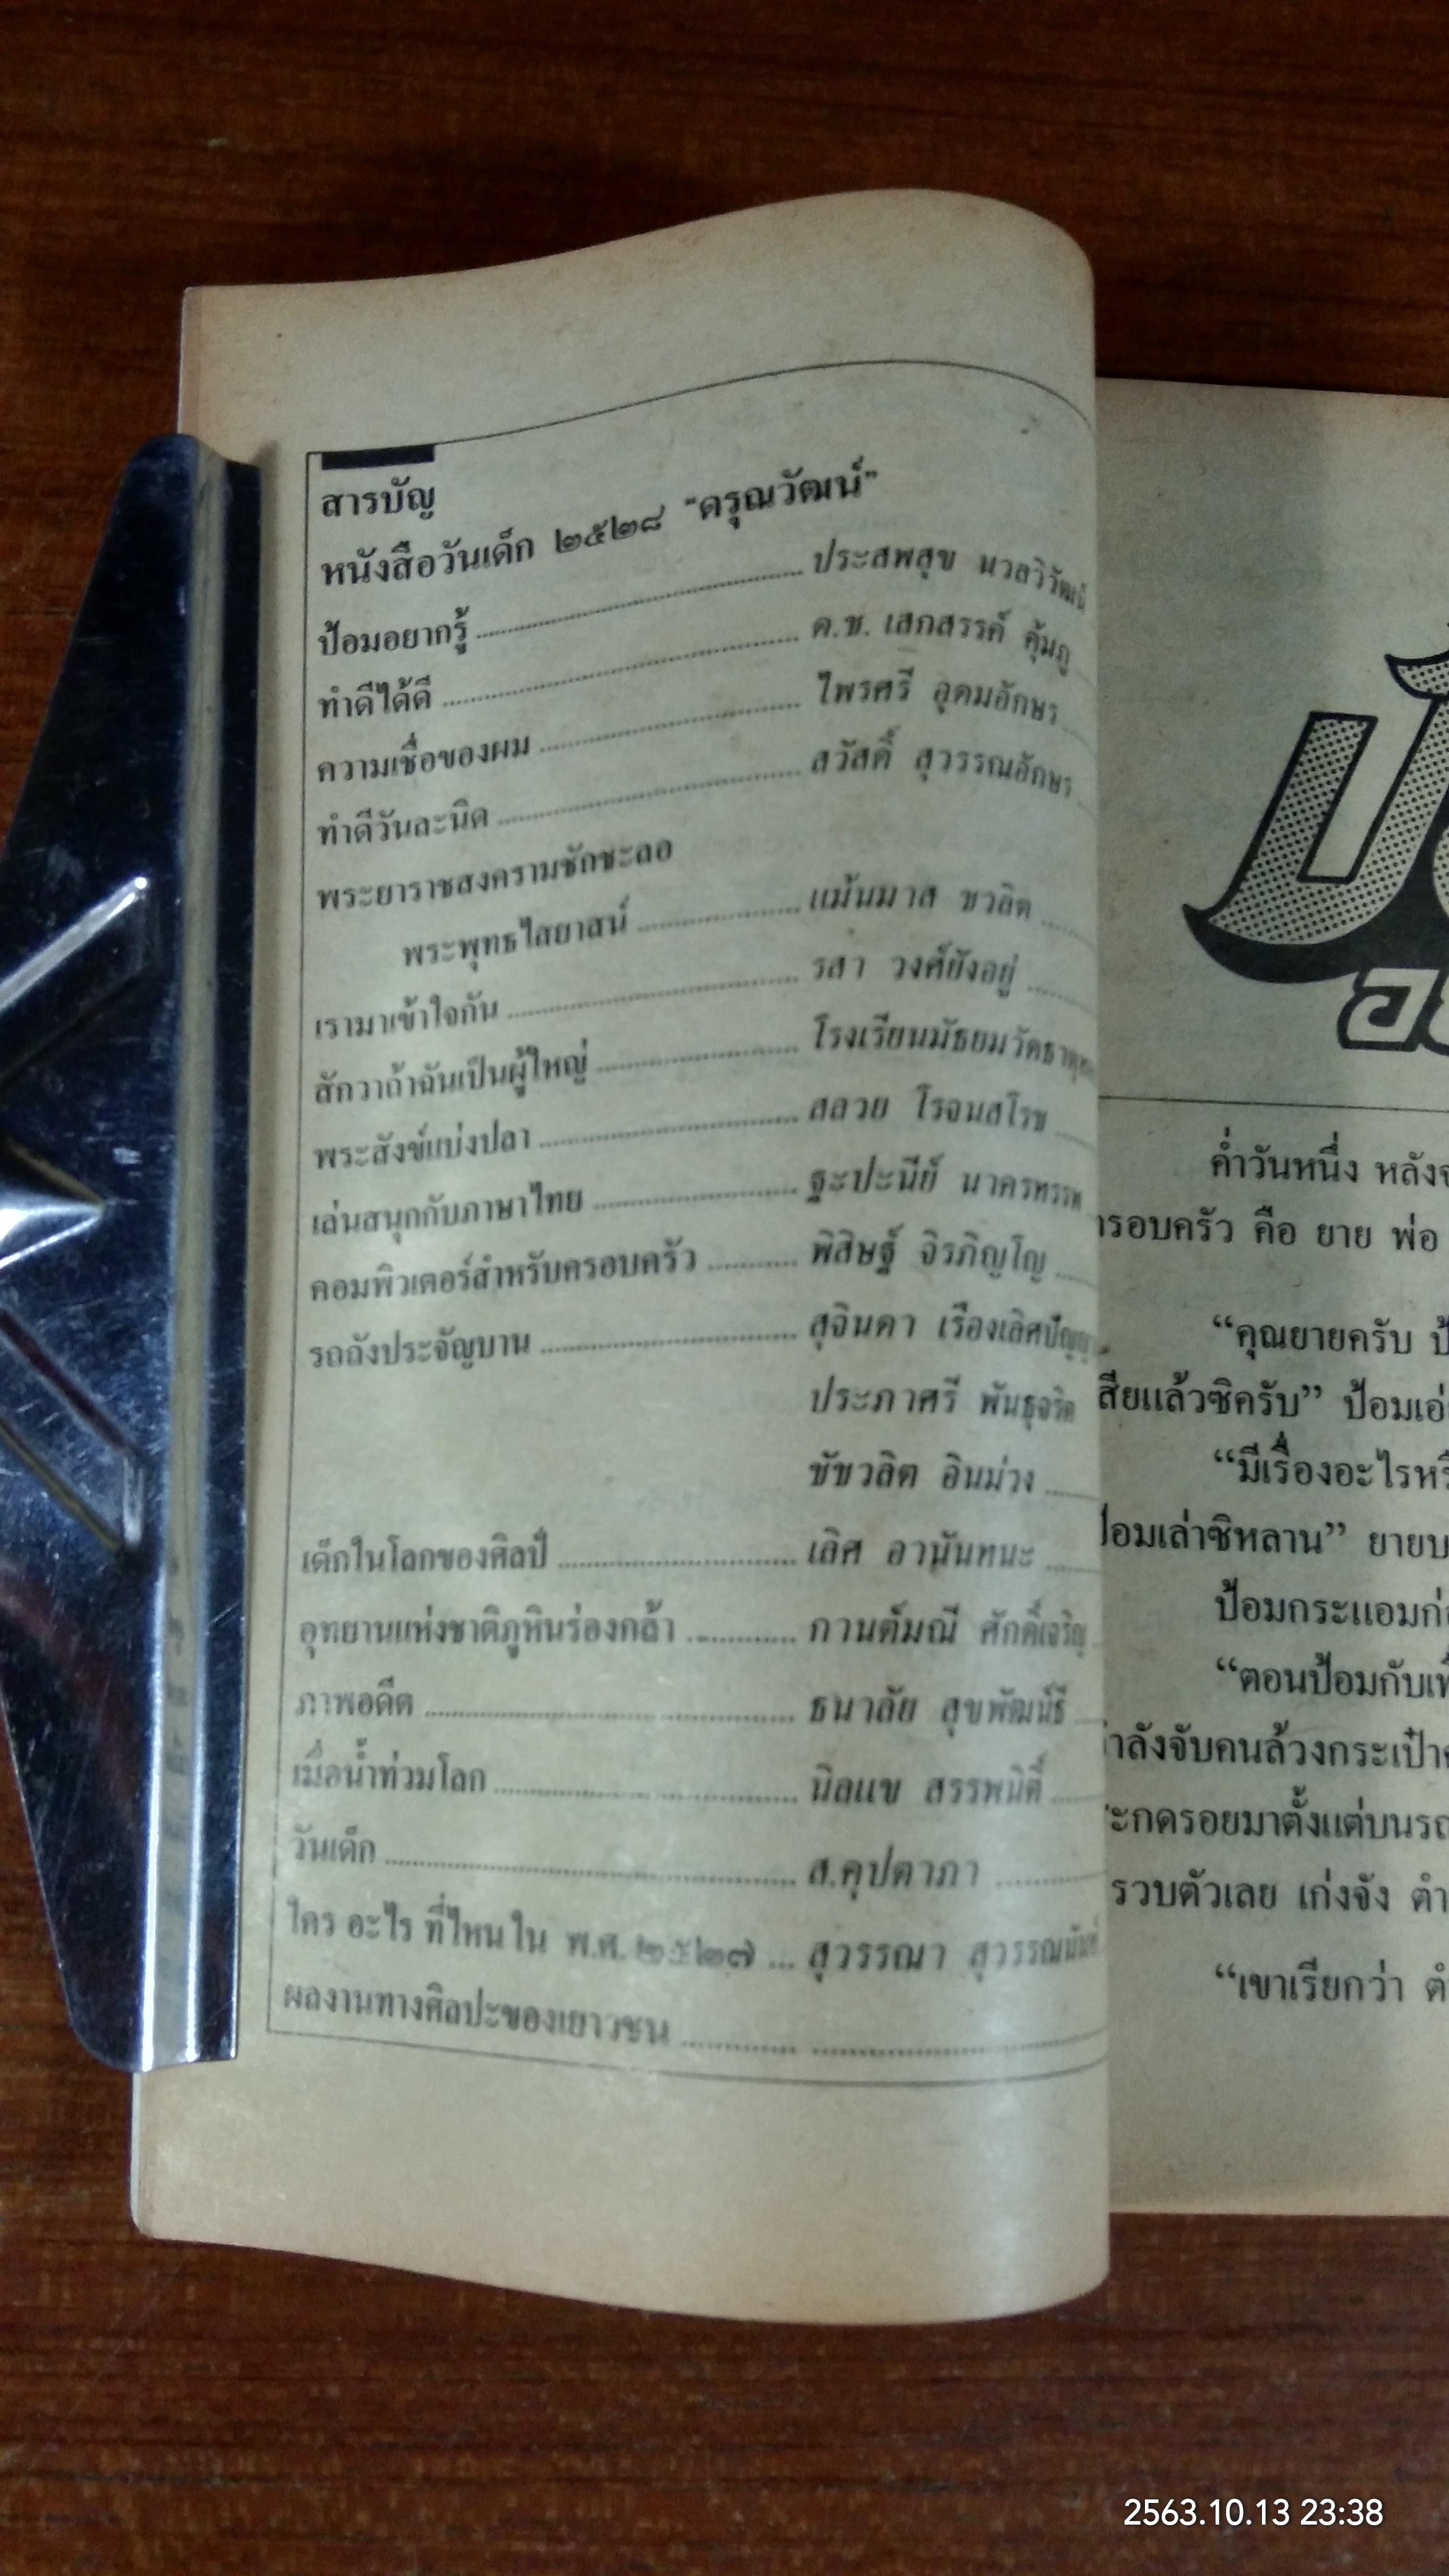 สารบัญ
หนังสือวันเด็ก ๒๕๒๘ "ดรุณวัฒน์"
ป้อมอยากรู้ ประสพสุข นวลวิวัฒน์
ทำดีได้ดี ด.ช. เสกสรรค์ คุ้มภู
ความเชื่อของผม ไพรศรี อุดมอักษร
ทำดีวันละนิด สวัสดิ์ สุวรรณอักษร
พระยาราชสงครามชักชะลอ
พระพุทธไสยาสน์ แม้นมาส ชวลิต
เรามาเข้าใจกัน รสา วงศ์ยังอยู่
สักวาถ้าฉันเป็นผู้ใหญ่ โรงเรียนมัธยมวัดธาตุ
พระสังข์แบ่งปลา สลวย โรจนสโรช
เล่นสนุกกับภาษาไทย ฐะปะนีย์ นาครทรรพ
คอมพิวเตอร์สำหรับครอบครัว พิสิษฐ์ จิรภิญโญ
รถถังประจัญบาน สุจินดา เรืองเลิศปัญญา
ประภาศรี พันธุจริต
ชัชวลิต อินม่วง
เด็กในโลกของศิลป์ เลิศ อานันทนะ
อุทยานแห่งชาติภูหินร่องกล้า กานต์มณี ศักดิ์เจริญ
ภาพอดีต ธนาลัย สุขพัฒน์ธี
เมื่อน้ำท่วมโลก นิลแข สรรพนิติ์
วันเด็ก ส.คุปตาภา
ใคร อะไร ที่ไหน ใน พ.ศ. ๒๕๒๗ ... สุวรรณา
ผลงานทางศิลปะของเยาวชน
ค่ำวันหนึ่ง หลัง
รอบครัว คือ ยาย พ่อ
“คุณยายครับ
สียแล้วซิครับ” ป้อมเอ่
“มีเรื่องอะไร
อมเล่าซิหลาน” ยาย
ป้อมกระแอม
“ตอนป้อมกับ
าลังจับคนล้วงกระเป๋า
ะกดรอยมาตั้งแต่บน
รวบตัวเลย เก่งจัง ตำ
“เขาเรียกว่า ตำ
2563.10.13 23:38